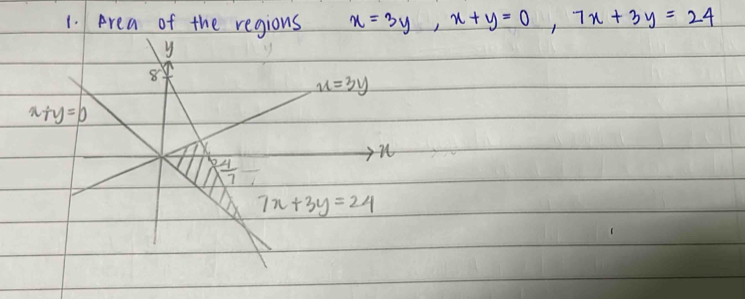 1. Area of the regions x = 3y , x + y = 0 , 7x + 3y = 24
y
8
x = 3y
x + y = 0
x
24/7
7x + 3y = 24